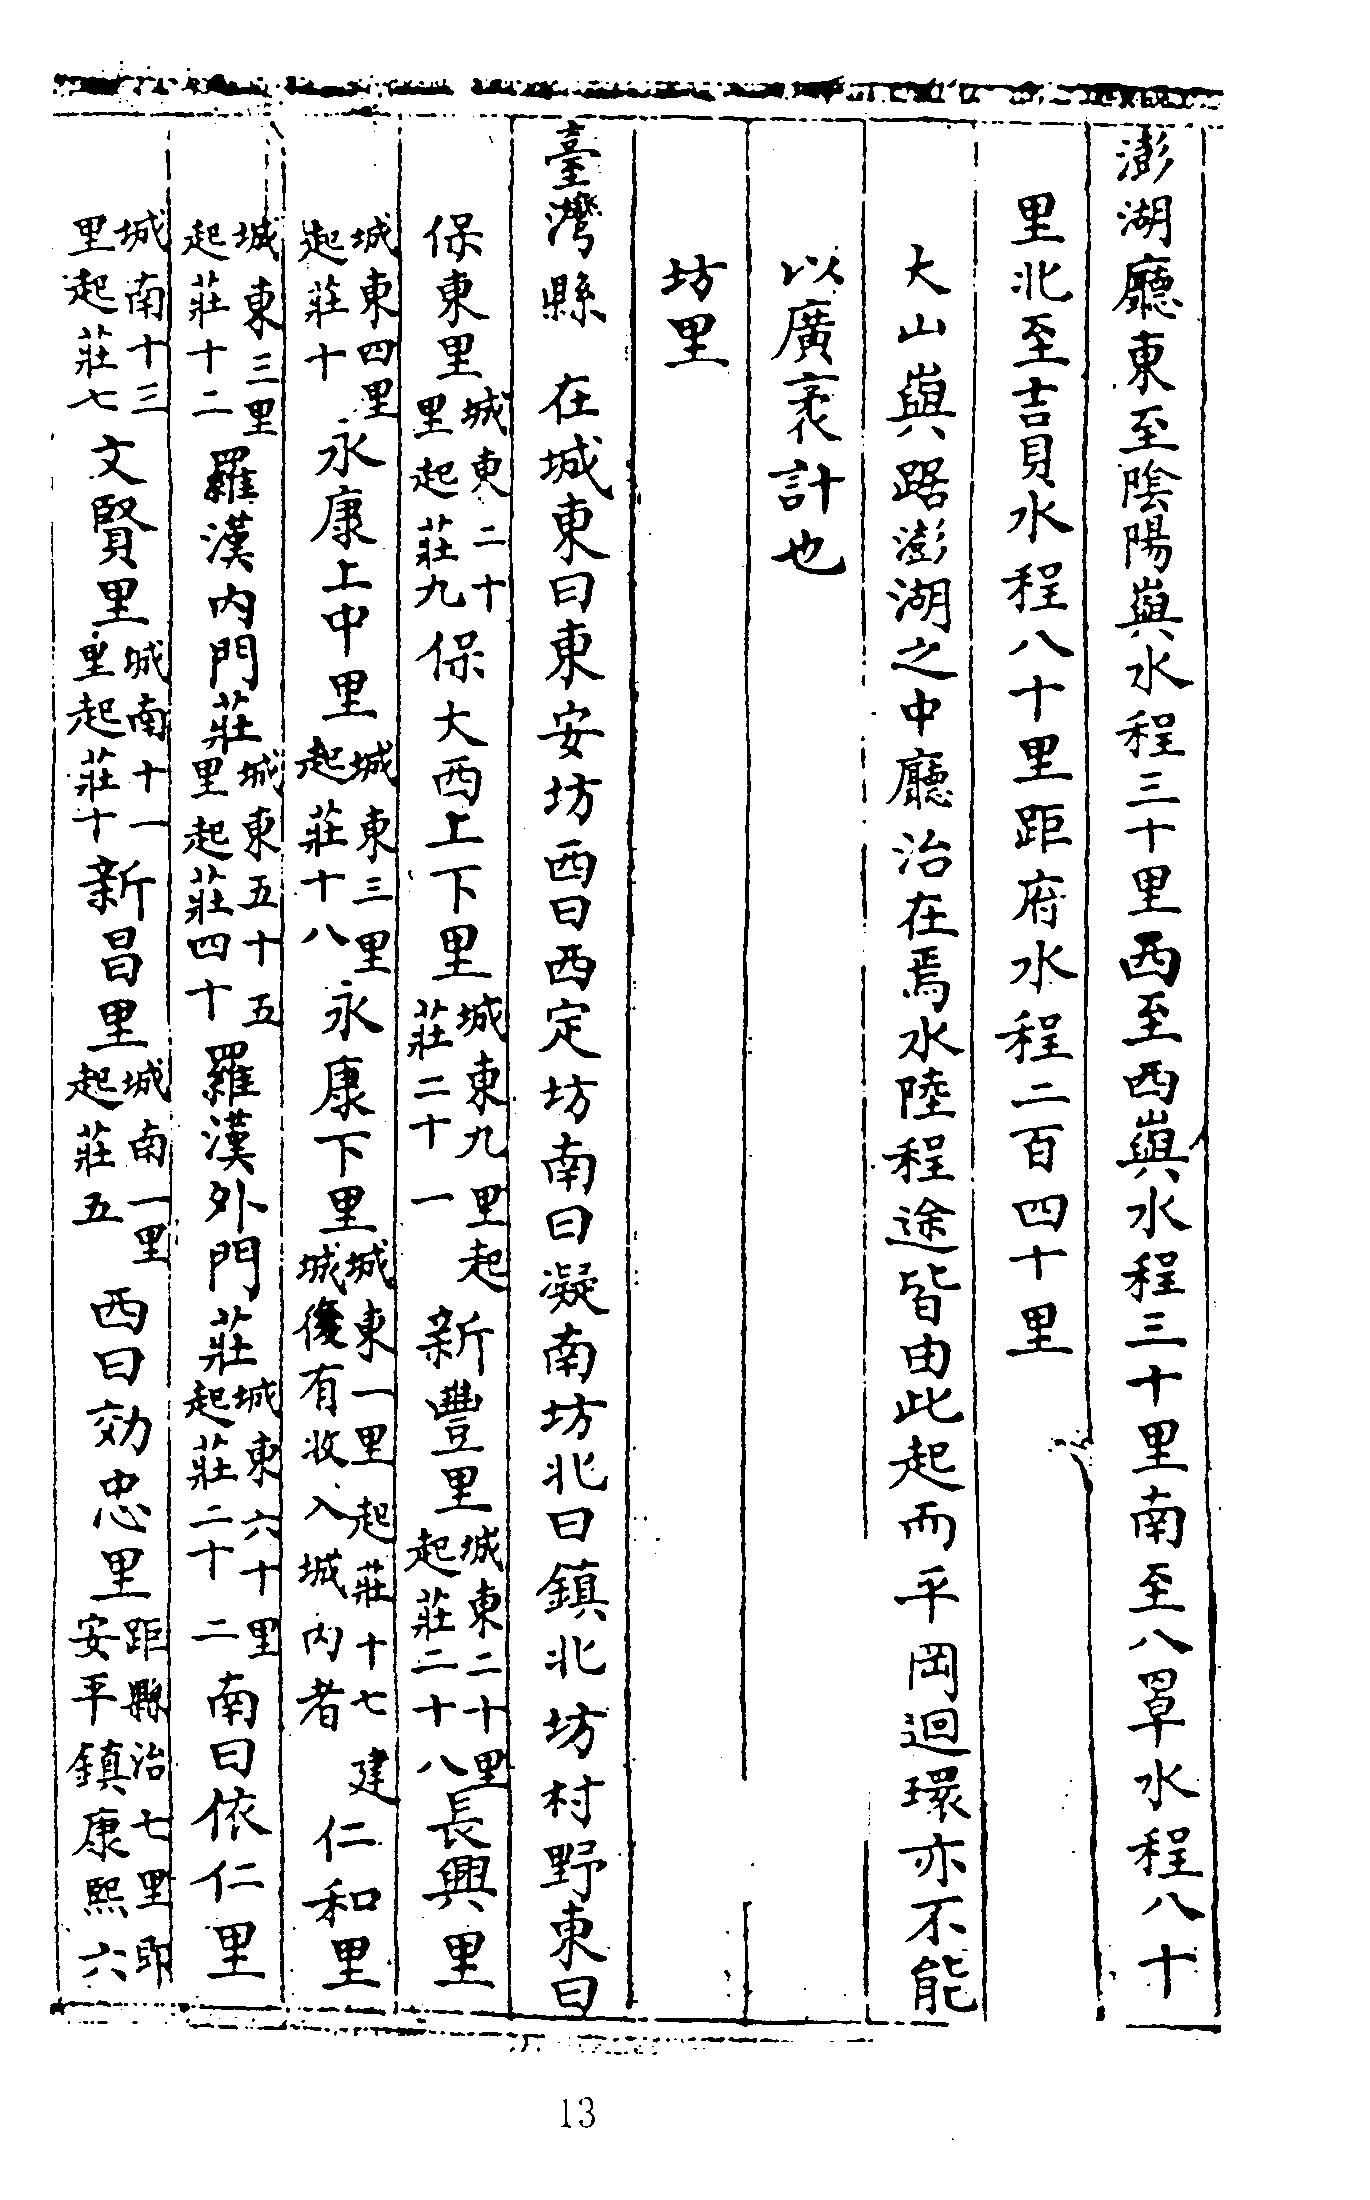 澎湖廳東至陰陽嶼水程三十里西至西嶼水程三十里南至八罩水程八十
里北至吉貝水程八十里距府水程二百四十里
大山嶼踞澎湖之中廳治在焉水陸程途皆由此起而平岡迴環亦不能
以廣袤計也
坊里
臺灣縣 在城東曰東安坊西曰西定坊南曰凝南坊北曰鎮北坊村野東曰
保東里城東二十里起莊九保大西上下里城東九里起莊二十一新豐里城東二十里起莊二十八長興里
城東四里起莊十永康上中里城東三里起莊十八永康下里城東一里起莊十七建城後有收入城內者仁和里
城東三里起莊十二羅漢內門莊城東五十五里起莊四十羅漢外門莊城東六十里起莊二十二南曰依仁里
城南十三里起莊七文賢里城南十一里起莊十新昌里城南一里起莊五西曰効忠里距縣治七里即安平鎮康熙六
13